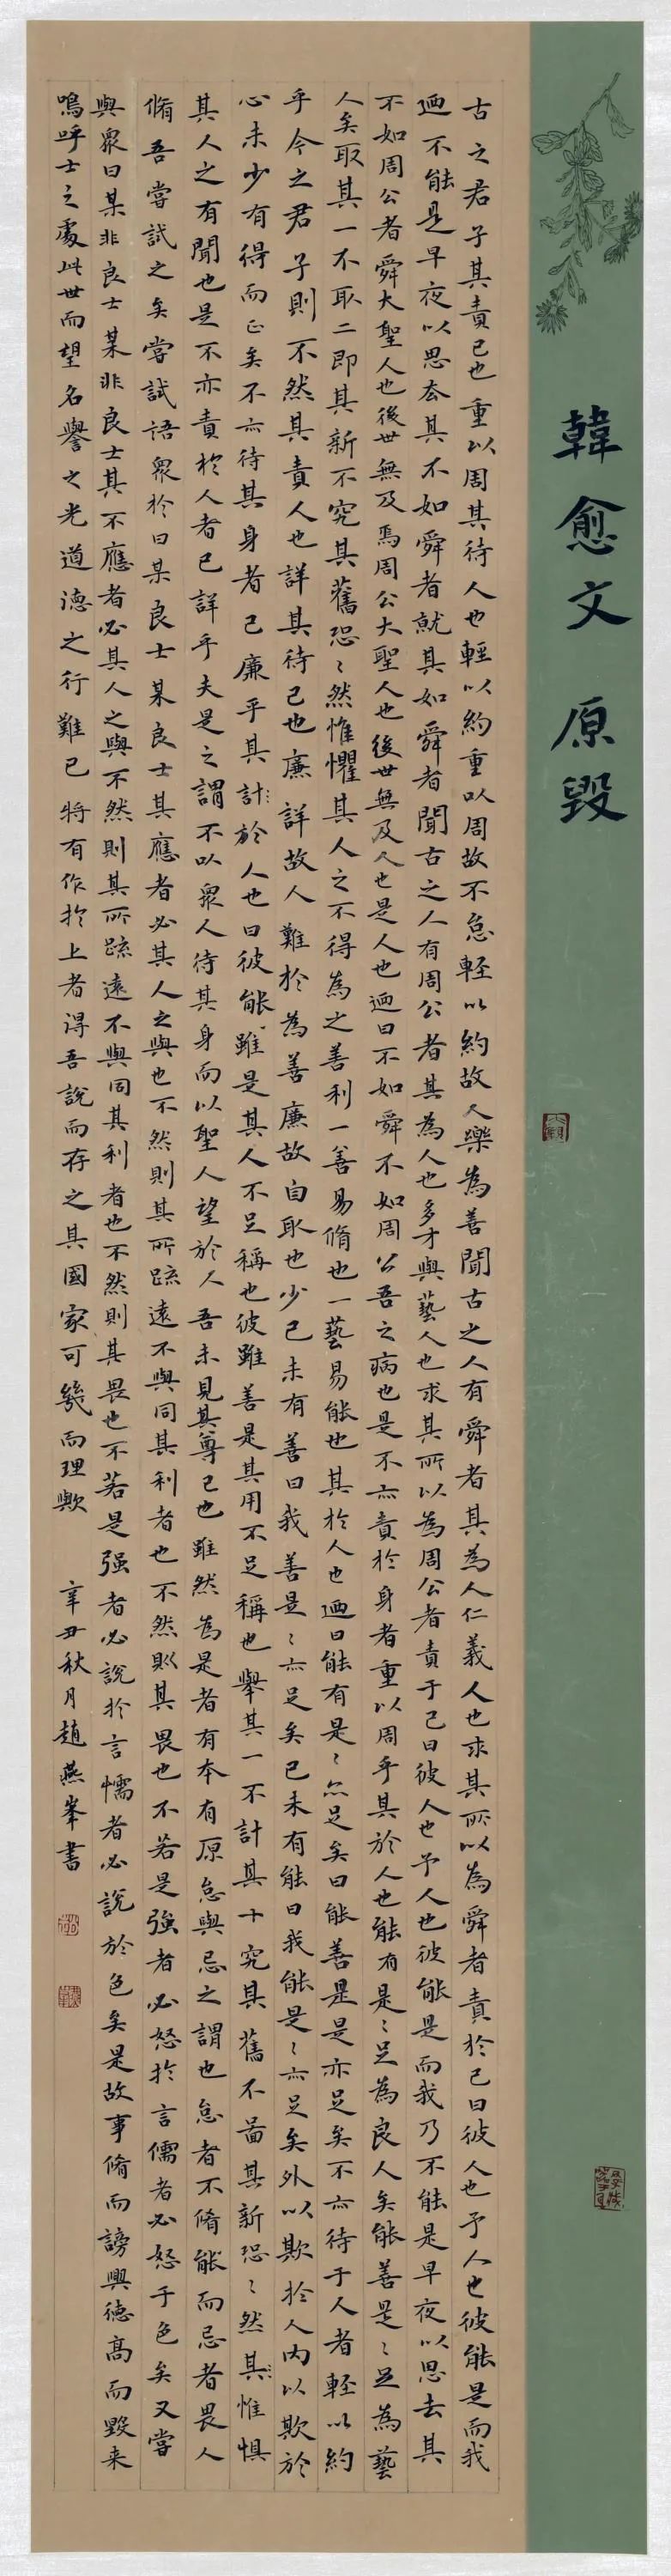 韓愈文 原毀
古之君子其責己也重以周其待人也輕以約重以周故不怠輕以約故人樂為善聞古之人有舜者其為人仁義人也求其所以為舜者責於己曰彼人也予人也彼能是而我
迺不能是早夜以思去其不如舜者就其如舜者聞古之人有周公者其為人也多才與藝人也求其所以為周公者責于己曰彼人也予人也彼能是而我乃不能是早夜以思去其
不如周公者舜大聖人也後世無及焉周公大聖人也後世無及人也是人也迺曰不如舜不如周公吾之病也是不亦責於身者重以周乎其於人也能有是〻足為良人矣能善是〻足為藝
人矣取其一不取二即其新不究其舊恐〻然惟懼其人之不得為之善利一善易脩也一藝易能也其於人也迺曰能有是〻亦足矣曰能善是是亦足矣不亦待于人者輕以約
乎今之君子則不然其責人也詳其待己也廉詳故人難於為善廉故自取也少己未有善曰我善是〻亦足矣己未有能曰我能是〻亦足矣外以欺於人內以欺於
心未少有得而止矣不亦待其身者己廉乎其計於人也曰彼能雖是其人不足稱也彼雖善是其用不足稱也舉其一不計其十究其舊不圖其新恐〻然其惟惧
其人之有聞也是不亦責於人者已詳乎夫是之謂不以眾人待其身而以聖人望於人吾未見其尊己也雖然為是者有本有原怠與忌之謂也怠者不脩能而忌者畏人
脩吾嘗試之矣嘗試語眾於曰某良士某良士其應者必其人之與也不然則其所疏遠不與同其利者也不然則其畏也不若是強者必怒於言儒者必怒于色矣又嘗
與眾曰某非良士某非良士其不應者必其人之與不然則其所疏遠不與同其利者也不然則其畏也不若是强者必說於言懦者必說於色矣是故事脩而謗興德高而毀来
嗚呼士之處此世而望名譽之光道德之行難已將有作於上者得吾說而存之其國家可幾而理歟 辛丑秋月趙燕峯書